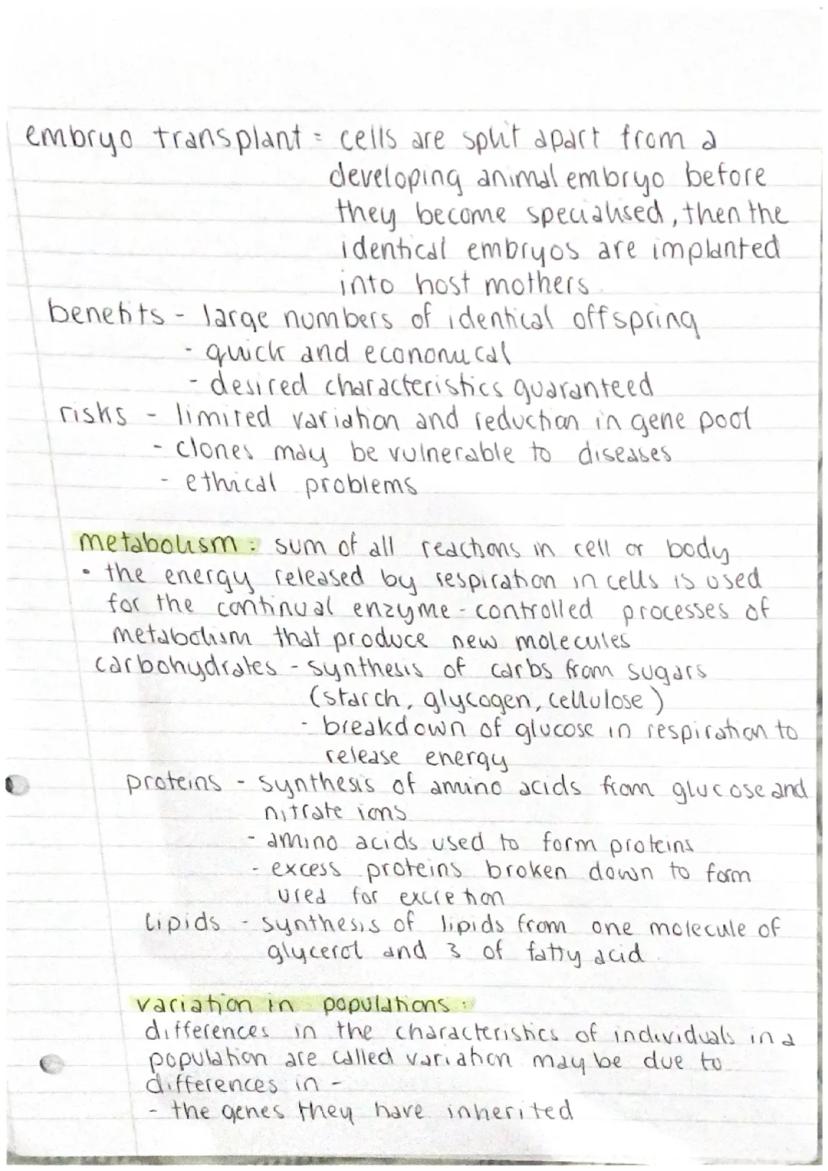 embryo transplant = cells are split apart from a
developing animal embryo before
they become specialised, then the
identical embryos are implanted
into host mothers.
benefits - large numbers of identical offspring
- quick and economical
- desired characteristics guaranteed
risks - limited variation and reduction in gene pool
- clones may be vulnerable to diseases
- ethical problems
metabolism: sum of all reactions in cell or body
• the energy released by respiration in cells is used
for the continual enzyme-controlled processes of
metabolism that produce new molecules
carbohydrates - synthesis of carbs from sugars
(starch, glycogen, cellulose)
- breakdown of glucose in respiration to
release energy
proteins - synthesis of amino acids from glucose and
nitrate ions
- amino acids used to form proteins
- excess proteins broken down to form
urea for excretion
lipids - synthesis of lipids from one molecule of
glycerol and 3 of fatty acid.
variation in populations:
differences in the characteristics of individuals in a
population are called variation may be due to
differences in -
- the genes they have inherited